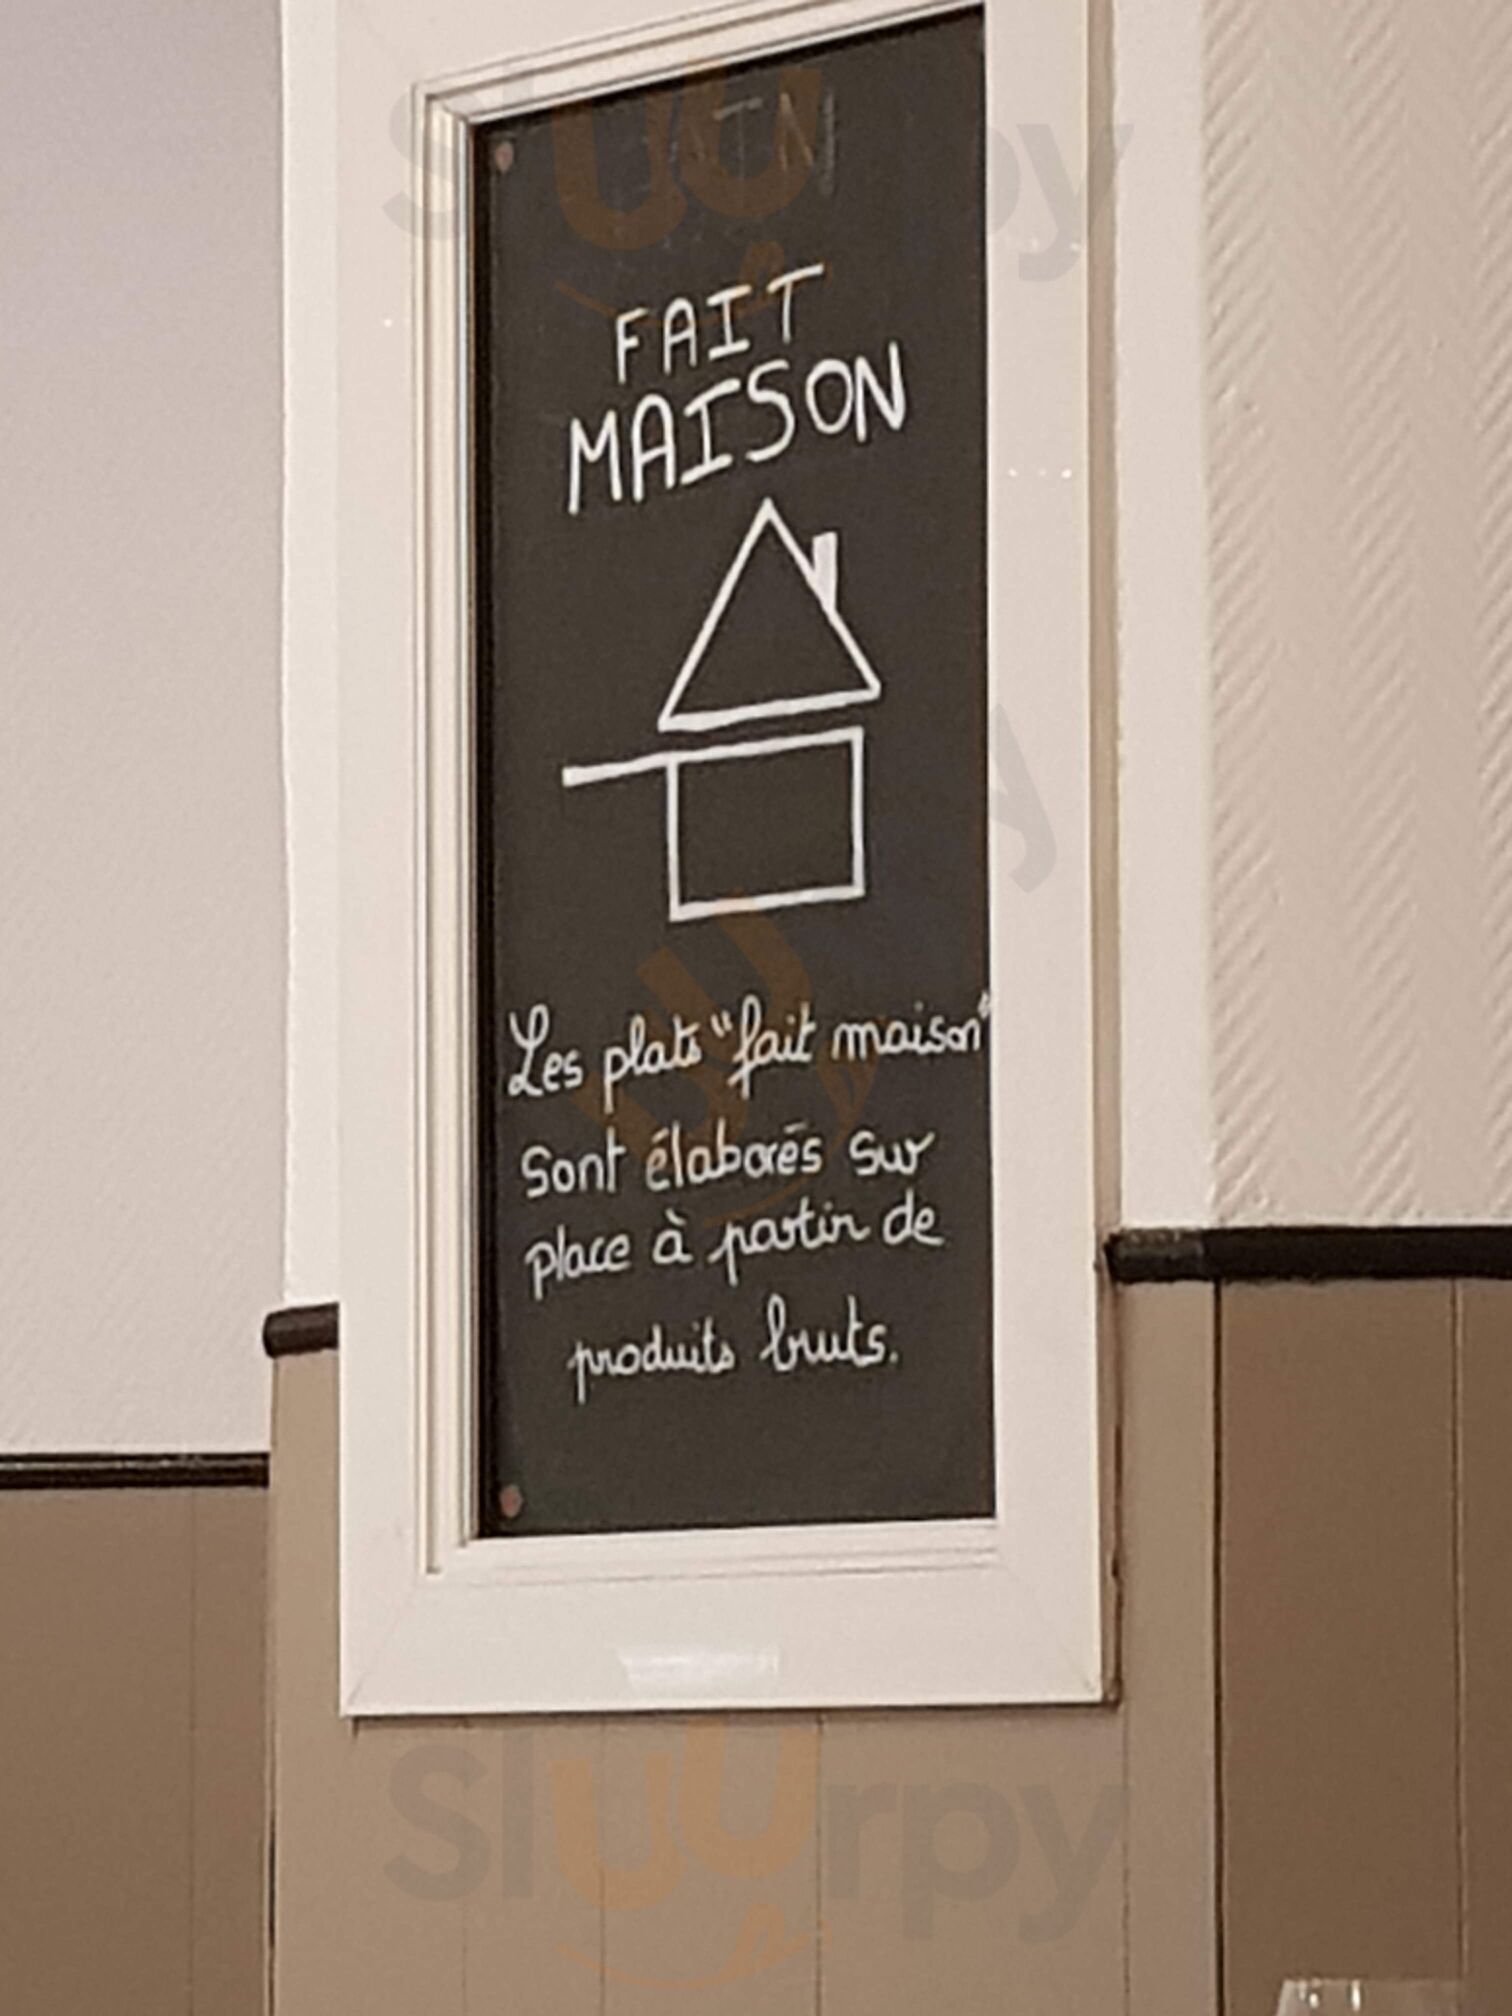 FAIT
MAISON
Les plats "fait maison"
sont élaborés sur
place à partir de
produits bruts.
Sluurpy
Sluurpy